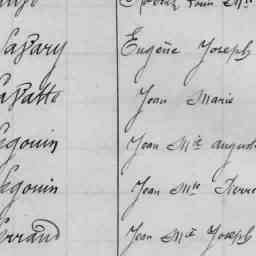 Lapary Eugène Joseph
Lapatte Jean Marie
Segouin Jean Mie august
Segouin Jean Mie Pierre
Jean Mie Joseph